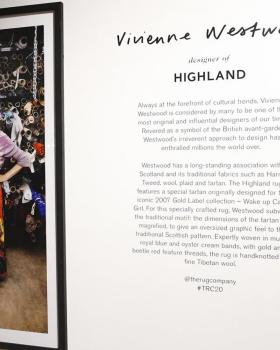 Vivienne Westw
designer of
HIGHLAND
Always at the forefront of cultural trends, Vivien
Westwood is considered by many to be one of th
most original and influential designers of our tim
Revered as a symbol of the British avant-garde
Westwood's irreverent approach to design has
enthralled millions the world over.
Westwood has a long-standing association with
Scotland and its traditional fabrics such as Harri
Tweed, wool, plaid and tartan. The Highland rug
features a special tartan originally designed for t
iconic 2007 Gold Label collection – Wake up Ca
Girl. For this specially crafted rug, Westwood subv
the traditional motif: the dimensions of the tartan
magnified, to give an oversized graphic feel to th
traditional Scottish pattern. Expertly woven in mu
royal blue and oyster cream bands, with gold and
beetle red feature threads, the rug is handknotted
fine Tibetan wool.
@therugcompany
#TRC20